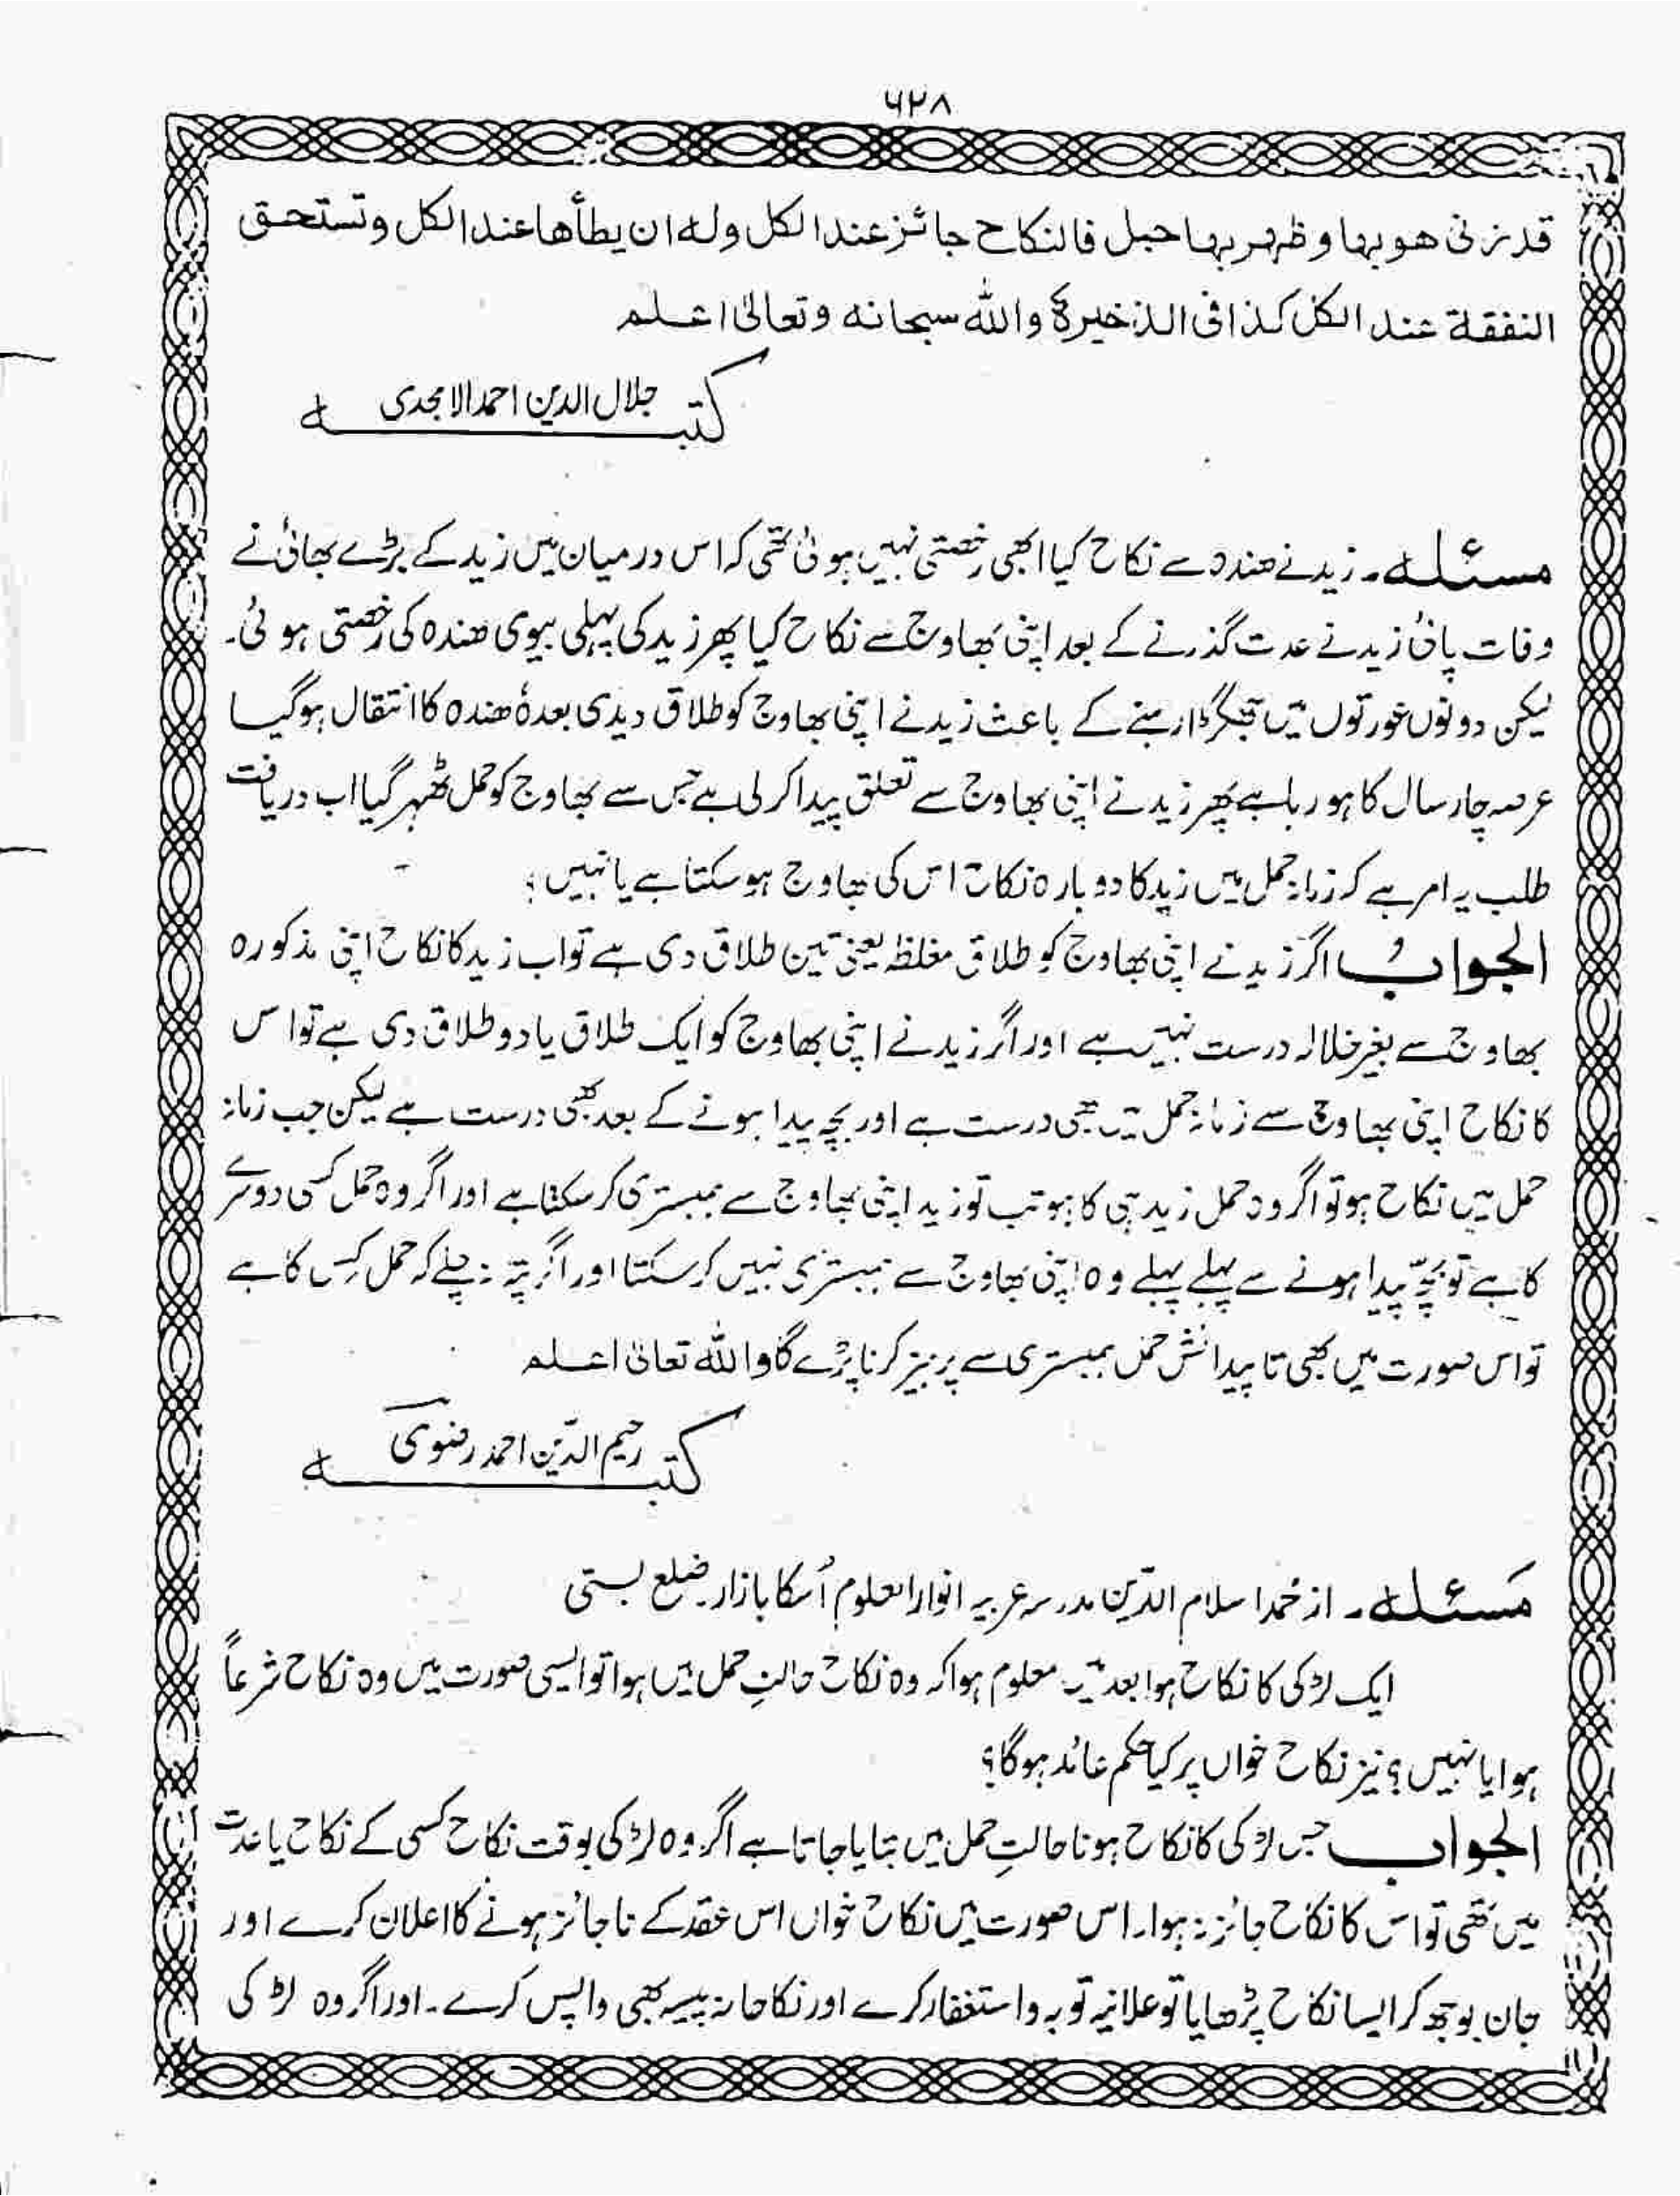 ۶۲۸
قد زنی هو بها وظهر بها حبل فالنکاح جائز عند الکل وله ان یطأها عند الکل وتستحق
النفقة عند الکل کذا فی الذخیرة والله سبحانه وتعالیٰ اعلم
کتبه جلال الدین احمد الامجدی
مسئله۔ زید نے ھندہ سے نکاح کیا ابھی رخصتی نہیں ہوئی تھی کہ اس درمیان میں زید کے بڑے بھائی نے
وفات پائی زید نے عدت گذرنے کے بعد اپنی بھاوج سے نکاح کیا پھر زید کی پہلی بیوی ھندہ کی رخصتی ہوئی۔
لیکن دونوں عورتوں میں جھگڑا رہنے کے باعث زید نے اپنی بھاوج کو طلاق دیدی بعدہٗ ھندہ کا انتقال ہوگیا
عرصہ چار سال کا ہو رہا ہے پھر زید نے اپنی بھاوج سے تعلق پیدا کر لی ہے جس سے بھاوج کو حمل ٹھہر گیا اب دریافت
طلب یہ امر ہے کہ زمانہ حمل میں زید کا دوبارہ نکاح اس کی بھاوج ہو سکتا ہے یا نہیں؟
الجوابُ اگر زید نے اپنی بھاوج کو طلاق مغلظ یعنی تین طلاق دی ہے تو اب زید کا نکاح اپنی مذکورہ
بھاوج سے بغیر حلالہ درست نہیں ہے اور اگر زید نے اپنی بھاوج کو ایک طلاق یا دو طلاق دی ہے تو اس
کا نکاح اپنی بھاوج سے زمانہ حمل میں بھی درست ہے اور بچہ پیدا ہونے کے بعد بھی درست ہے لیکن جب زمانہ
حمل میں نکاح ہو تو اگر وہ حمل زید ہی کا ہو تب تو زید اپنی بھاوج سے ہمبستری کر سکتا ہے اور اگر وہ حمل کسی دوسرے
کا ہے تو بچّہ پیدا ہونے سے پہلے پہلے وہ اپنی بھاوج سے ہمبستری نہیں کر سکتا اور اگر پتہ نہ چلے کہ حمل کِس کا ہے
تو اس صورت میں بھی تا پیدائش حمل ہمبستری سے پرہیز کرنا پڑے گا والله تعالیٰ اعلم
کتبه رحیم الدّین احمد رضوی
مَسئله۔ از محمد اسلام الدّین مدرسہ عربیہ انوار العلوم اُسکا بازار۔ ضلع بستی
ایک لڑکی کا نکاح ہوا بعد میں معلوم ہوا کہ وہ نکاح حالتِ حمل میں ہوا تو ایسی صورت میں وہ نکاح شرعاً
ہوا یا نہیں؟ نیز نکاح خواں پر کیا حکم عائد ہوگا؟
الجواب جس لڑکی کا نکاح ہونا حالتِ حمل میں بتایا جاتا ہے اگر وہ لڑکی بوقت نکاح کسی کے نکاح یا عدت
میں تھی تو اس کا نکاح جائز نہ ہوا۔ اس صورت میں نکاح خواں اس عقد کے ناجائز ہونے کا اعلان کرے اور
جان بوجھ کر ایسا نکاح پڑھایا تو علانیہ توبہ واستغفار کرے اور نکاحانہ پیسہ بھی واپس کرے۔ اور اگر وہ لڑکی